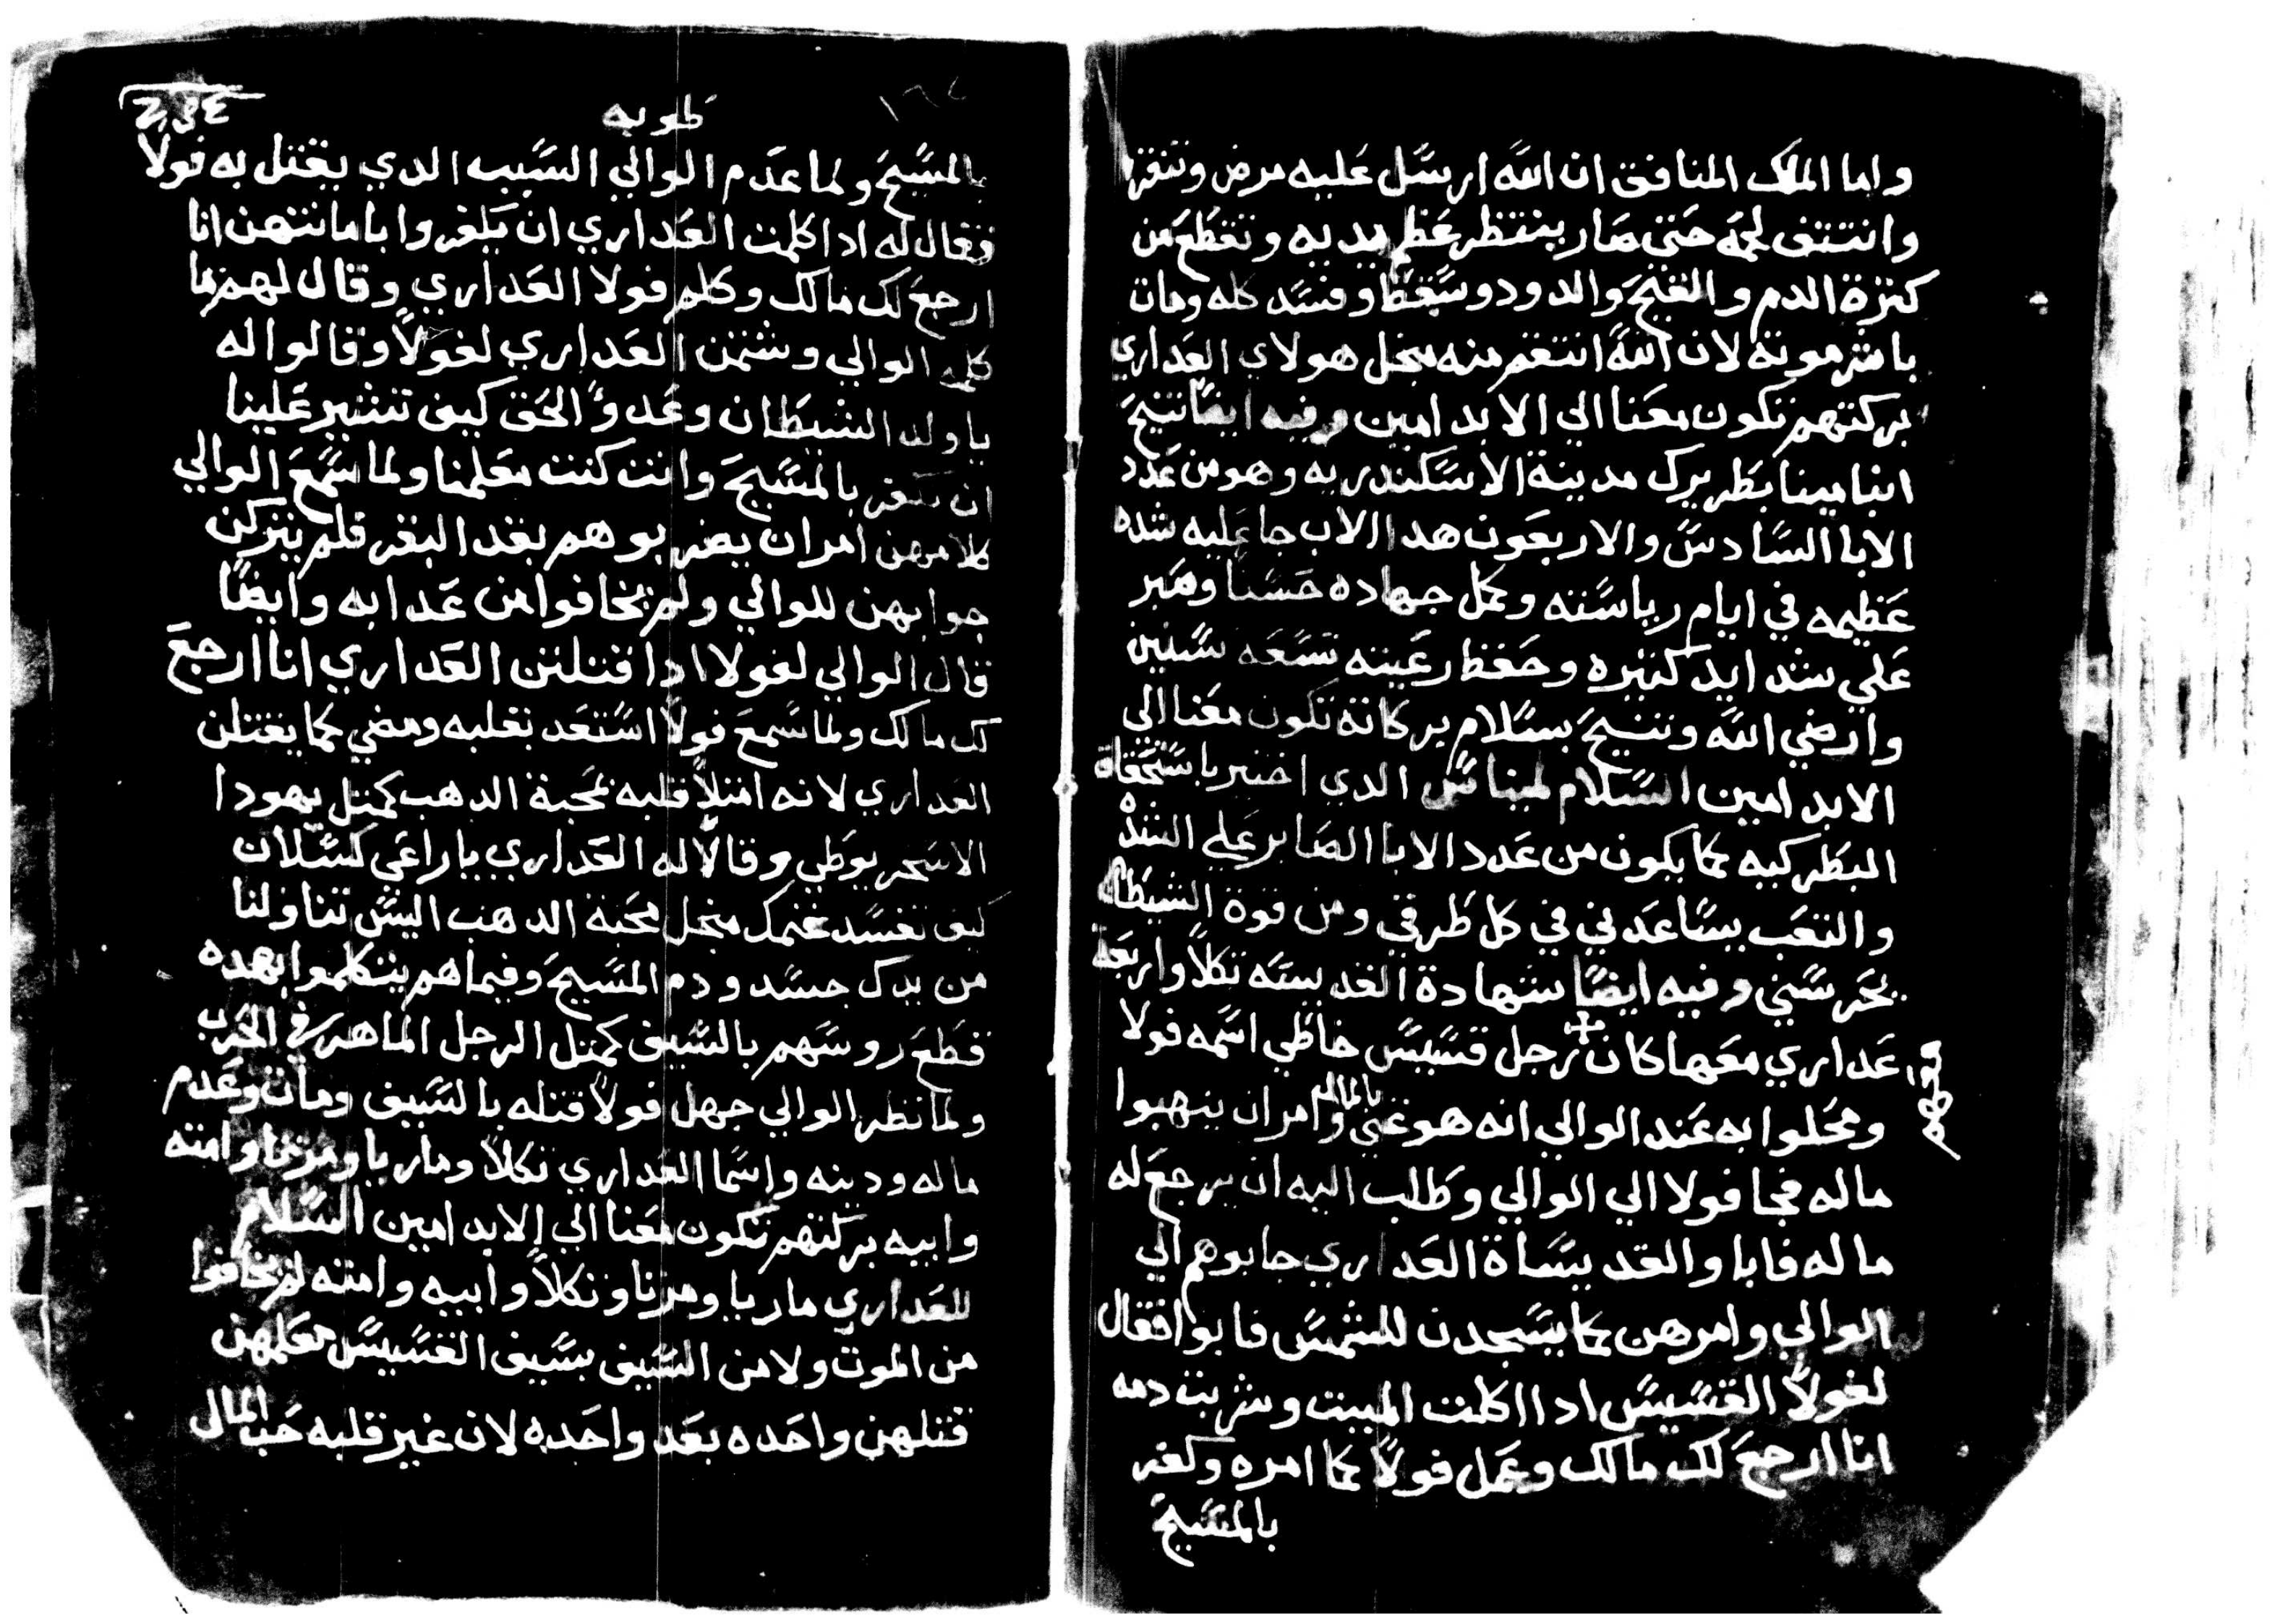 واما الملك المنافق ان الله ارسل عليه مرض وتنفزا
وانتتف لحمه حتى صار ينتظر عظم يديه وتقطع من
كثرة الدم والقيح والدود وسقط وفسد كله ومات
باشر موتة لان الله انتقم منه منجل هولاي العداري
بركتهم تكون معنا الي الابد امين وفيه ايضا تنيح
انبا مينا بطريرك مدينة الاسكندريه وهو من عدد
الابا السادس والاربعون هدا الاب جا عليه شده
عظيمه في ايام رياسته وكمل جهاده حسنا وصبر
علي شدايد كثيره وحفظ رعيته تسعه سنين
وارضي الله وتنيح بسلام بركاته تكون معنا الي
الابد امين السلام لمينا الدي اختير باستحقاق
البطركيه كما يكون من عدد الابا الصابر علي الشده
والتعب يساعدني في كل طرقي ومن قوة الشيطان
يحرسني وفيه ايضا شهادة القديسه تكلا واربعة
عداري معها كان رجل قسيس خاطي اسمه فولا
ومحلوا به عند الوالي انه هو غني بالمال وامر ان ينهبوا
ماله فجا فولا الي الوالي وطلب اليه ان يرجع له
ماله فابا والقديساة العداري جابوهم الي
الوالي وامرهن كما يسجدن للشمس فابوا فقال
لفولا القسيس ادا اكلت الميت وشربت دمه
انا ارجع لك مالك وعمل فولا كما امره وكفر
بالمسيح
طوبه
بالمسيح ولما عدم الوالي السبب الدي يقتل به فولا
فقال له ادا كلمت العداري ان يكفروا باماتهن انا
ارجع لك مالك وكلم فولا العداري وقال لهم ما
كلمه الوالي وشتمن العداري لفولا وقالوا له
يا ولد الشيطان وعدو الحق كيف تشير علينا
ان نكفر بالمسيح وانت كنت معلمنا ولما سمع الوالي
كلامهن امر ان يضربوهم بقد البقر فلم يتركن
جوابهن للوالي ولم يخافوا من عدابه وايضا
قال الوالي لفولا ادا قتلتن العداري انا ارجع
لك مالك ولما سمع فولا استعد بقلبه ومضي كما يقتلن
العداري لانه امتلا قلبه محبة الدهب كمثل يهودا
الاسخريوطي وقالا له العداري يا راعي كسلان
كيف تفسد غنمك منجل محبة الدهب اليش تناولنا
من يدك جسد ودم المسيح وفيما هم يتكلموا بهده
قطع روسهم بالسيف كمثل الرجل الماهر في الحرب
ولما نظر الوالي جهل فولا قتله بالسيف ومات وعدم
ماله ودينه واسما العداري تكلا وماريا ومرتا وامنه
وابيه بركتهم تكون معنا الي الابد امين السلام
للعداري ماريا ومرتا وتكلا وابيه وامنه لم يخافوا
من الموت ولا من السيف بسيف القسيس معلمهن
قتلهن واحده بعد واحده لان غير قلبه حب المال